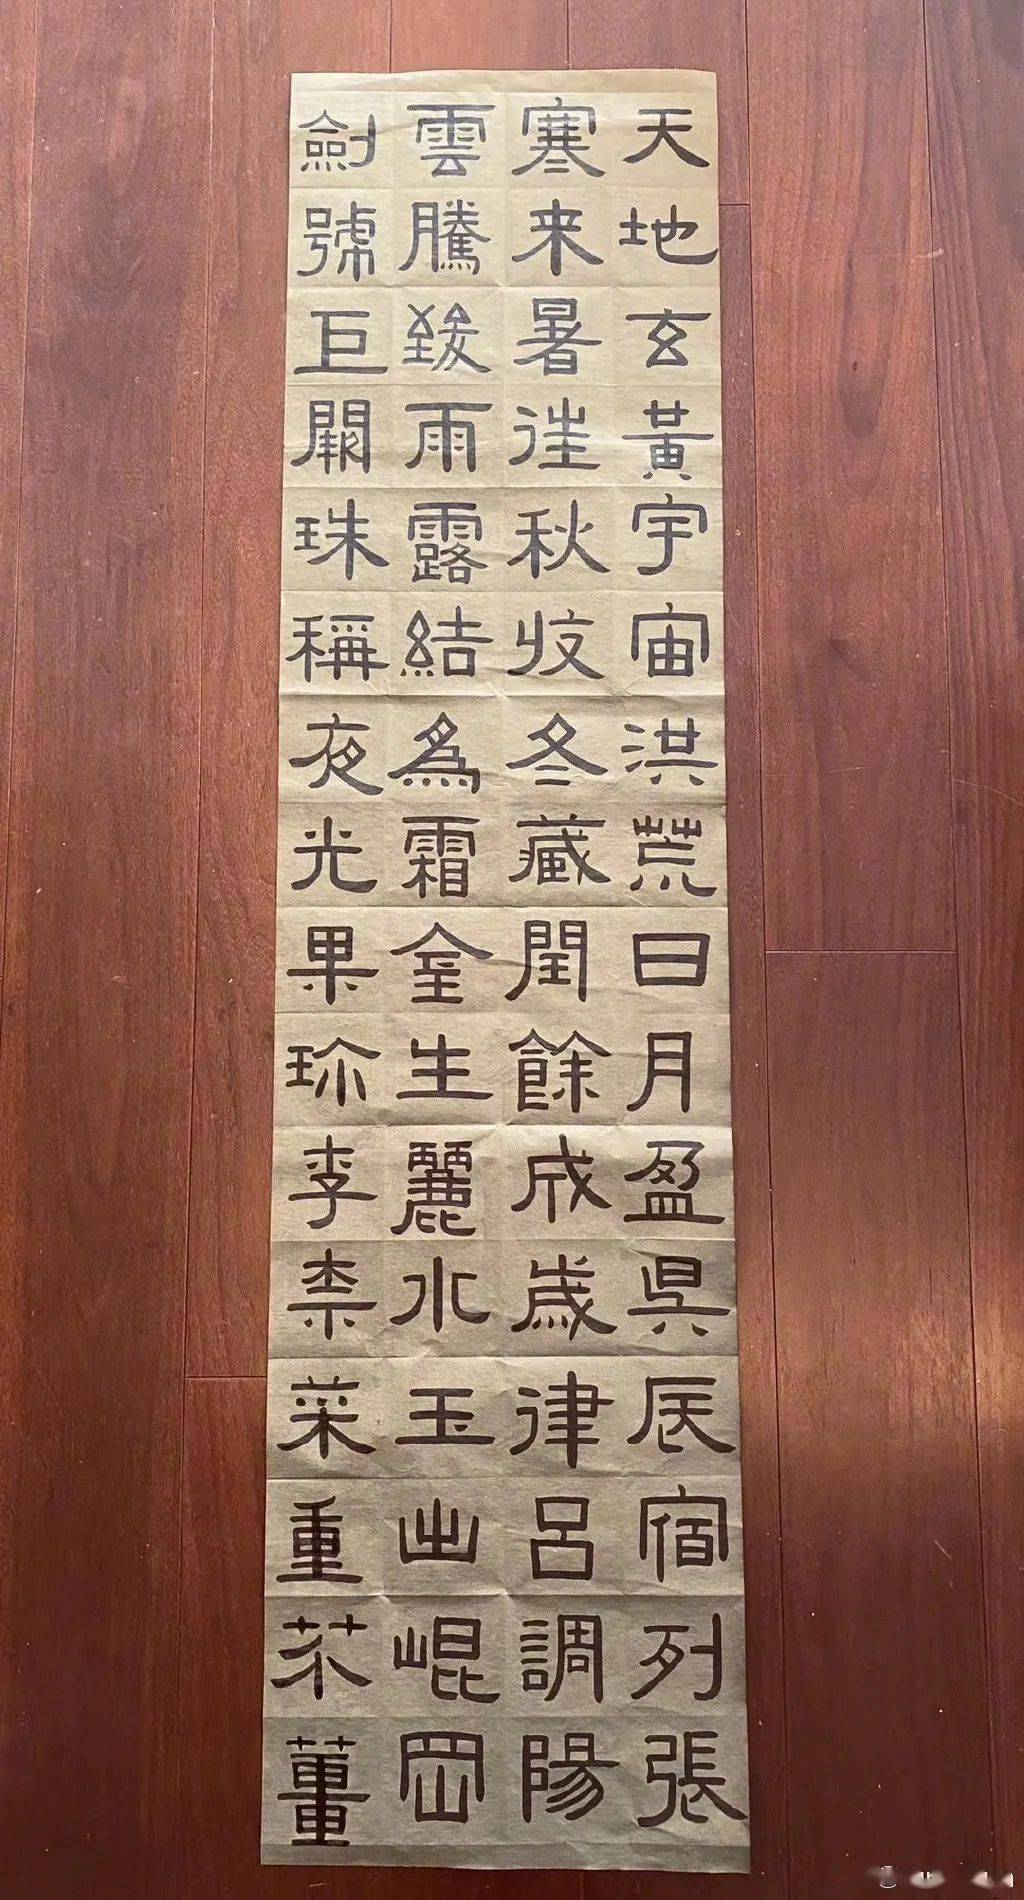 天地玄黃宇宙洪荒日月盈昃辰宿列張
寒来暑往秋收冬藏閏餘成歲律呂調陽
雲騰致雨露結為霜金生麗水玉出崐岡
劍號巨闕珠稱夜光果珎李柰菜重芥薑